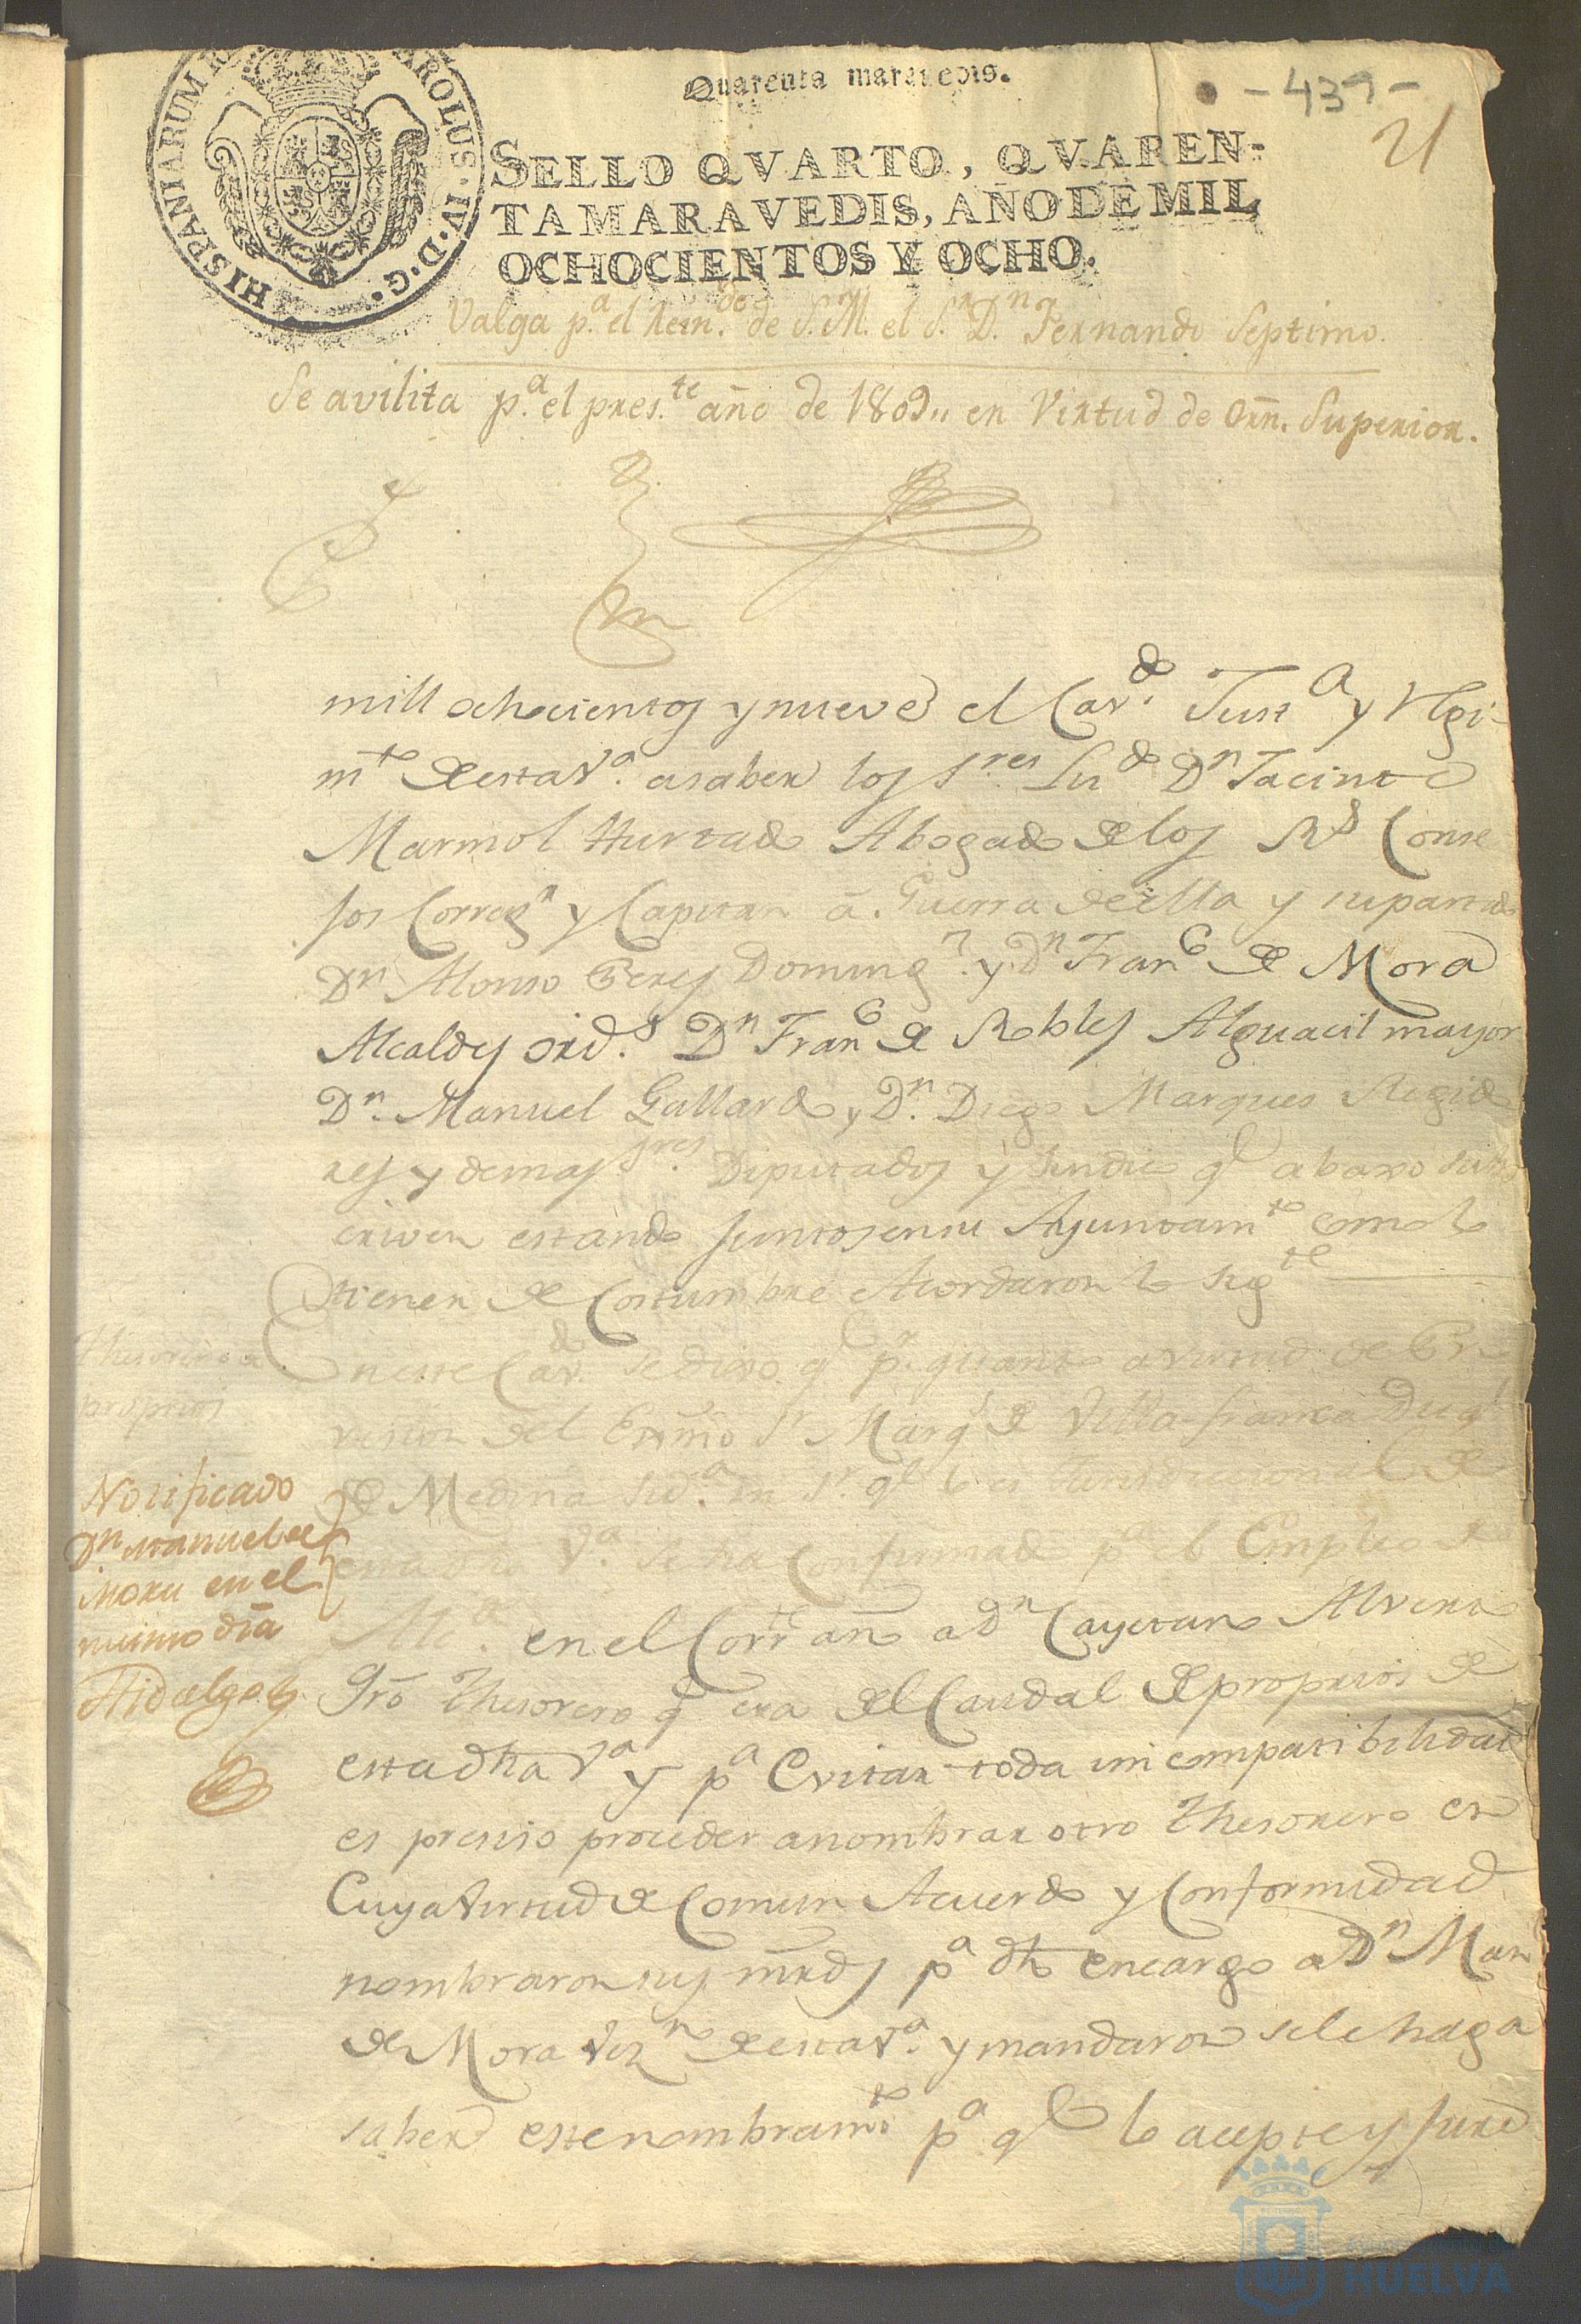 Quarenta maravedis.
- 439 -
21
HISPANIARUM R
CAROLUS·IV·D·G·
SELLO QVARTO, QVAREN-
TA MARAVEDIS, AÑO DE MIL
OCHOCIENTOS Y OCHO.
Valga p.a el Rein.do de S.M. el S.r D.n Fernando Septimo.
Se avilita p.a el pres.te año de 1809,, en Virtud de Orn. Superior.
mill ochocientos y nueve el Cav.do Just.a y Regi-
m.to de esta V.a a saber los S.res Lic.do D.n Jacinto
Marmol Hurtado Abogado de los R.s Conse
jos Correg.r y Capitan á Guerra de ella y su partido
D.n Alonso Perez Doming.z y D.n Fran.co de Mora
Alcaldes ord.s D.n Fran.co de Robles Alguacil mayor
D.n Manuel Gallardo, y D.n Diego Marques Regido
res y demas S.res Diputados y Sindico q.e abaxo subs
criven estando juntos en su Ayuntam.to como lo
tienen de Costumbre Acordaron lo sig.te
Thesorero de
propios
En este Cav.do se dixo q.e p.r quanto a virtud de Pro
vision del Exmo S.r Marq.s de Villafranca Duq.e
de Medina Sid.a mi S.r q.e lo es Jurisdiccional de
esta dha V.a se ha Confirmado p.a el Empleo de
en el Corr.te año a D.n Cayetano Alvarez
Thesorero q.e era del Caudal de proprios de
esta dha V.a y p.a Evitar toda incompatibilidad
es presiso proceder a nombrar otro Thesorero en
Cuya Virtud de Comun Acuerdo y Conformidad
nombraron sus mrds p.a dho encargo a D.n Man
de Mora Vez.no de esta V.a y mandaron se le haga
saber este nombram.to p.a q.e lo acepte y jure
Notificado
D.n Manuel de
Mora en el
mismo dia
Hidalgo
HUELVA